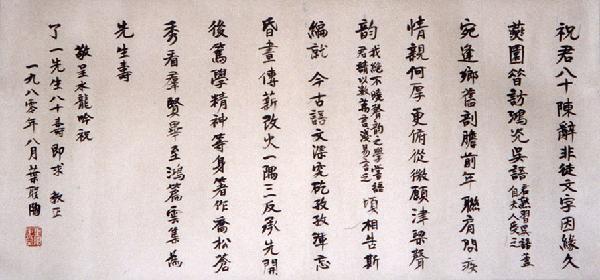 祝君八十陳辭非徒文字因緣久
葵園昔訪鴻光吳語君熟習吳語蓋自夫人受之
宛逢鄉舊剖膽前年聯肩問疾
情親何厚更俯從微願津梁聲
韵我絕不曉聲韵之學嘗語君請以數萬言淺易言之頃相告斯
編就今古語文深究矻孜孜殫忘
昏晝傳薪改火一隅三反承先開
後篤學精神等身著作喬松蒼
秀看羣賢畢至鴻篇雲集為
先生壽
敬呈水龍吟祝
了一先生八十壽即求 教正
一九八零年八月葉聖陶